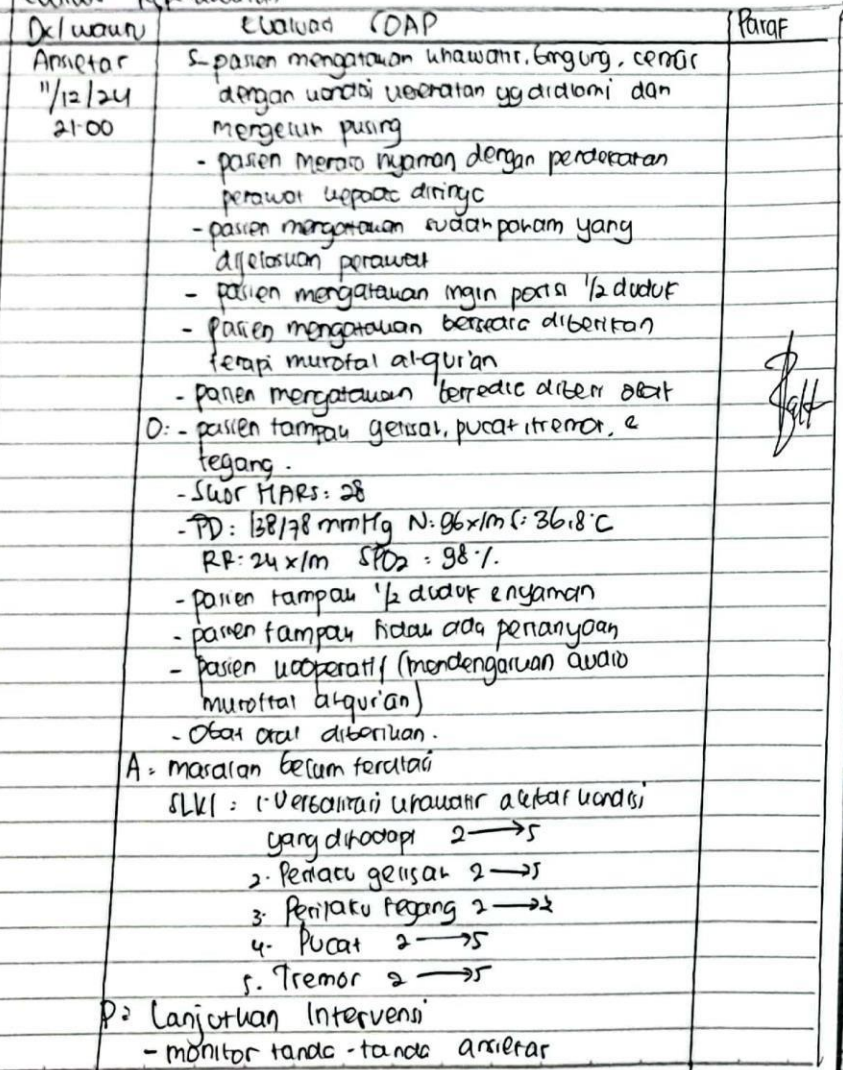 Dx/waktu Evaluasi SOAP Paraf
Ansietas S- pasien mengatakan khawatir, bingung, cemas
11/12/24 dengan kondisi kesehatan yg dialami dan
21.00 mengeluh pusing
- pasien merasa nyaman dengan pendekatan
perawat kepada dirinya
- pasien mengatakan sudah paham yang
dijelaskan perawat
- pasien mengatakan ingin posisi 1/2 duduk
- pasien mengatakan bersedia diberikan
terapi murotal al-qur'an
- pasien mengatakan bersedia diberi obat
O: - pasien tampak gelisah, pucat, tremor, &
tegang.
- Skor HARS: 28
- TD: 138/78 mmHg N: 96x/m S: 36,8°C
RR: 24 x/m SPO2 : 98%.
- pasien tampak 1/2 duduk & nyaman
- pasien tampak tidak ada pertanyaan
- pasien kooperatif (mendengarkan audio
murottal al-qur'an)
- Obat oral diberikan.
A: masalah belum teratasi
SLKI : 1. Verbalisasi khawatir akibat kondisi
yang dihadapi 2→5
2. Perilaku gelisah 2→5
3. Perilaku tegang 2→
4. Pucat 2→5
5. Tremor 2→5
P: Lanjutkan Intervensi
- monitor tanda-tanda ansietas